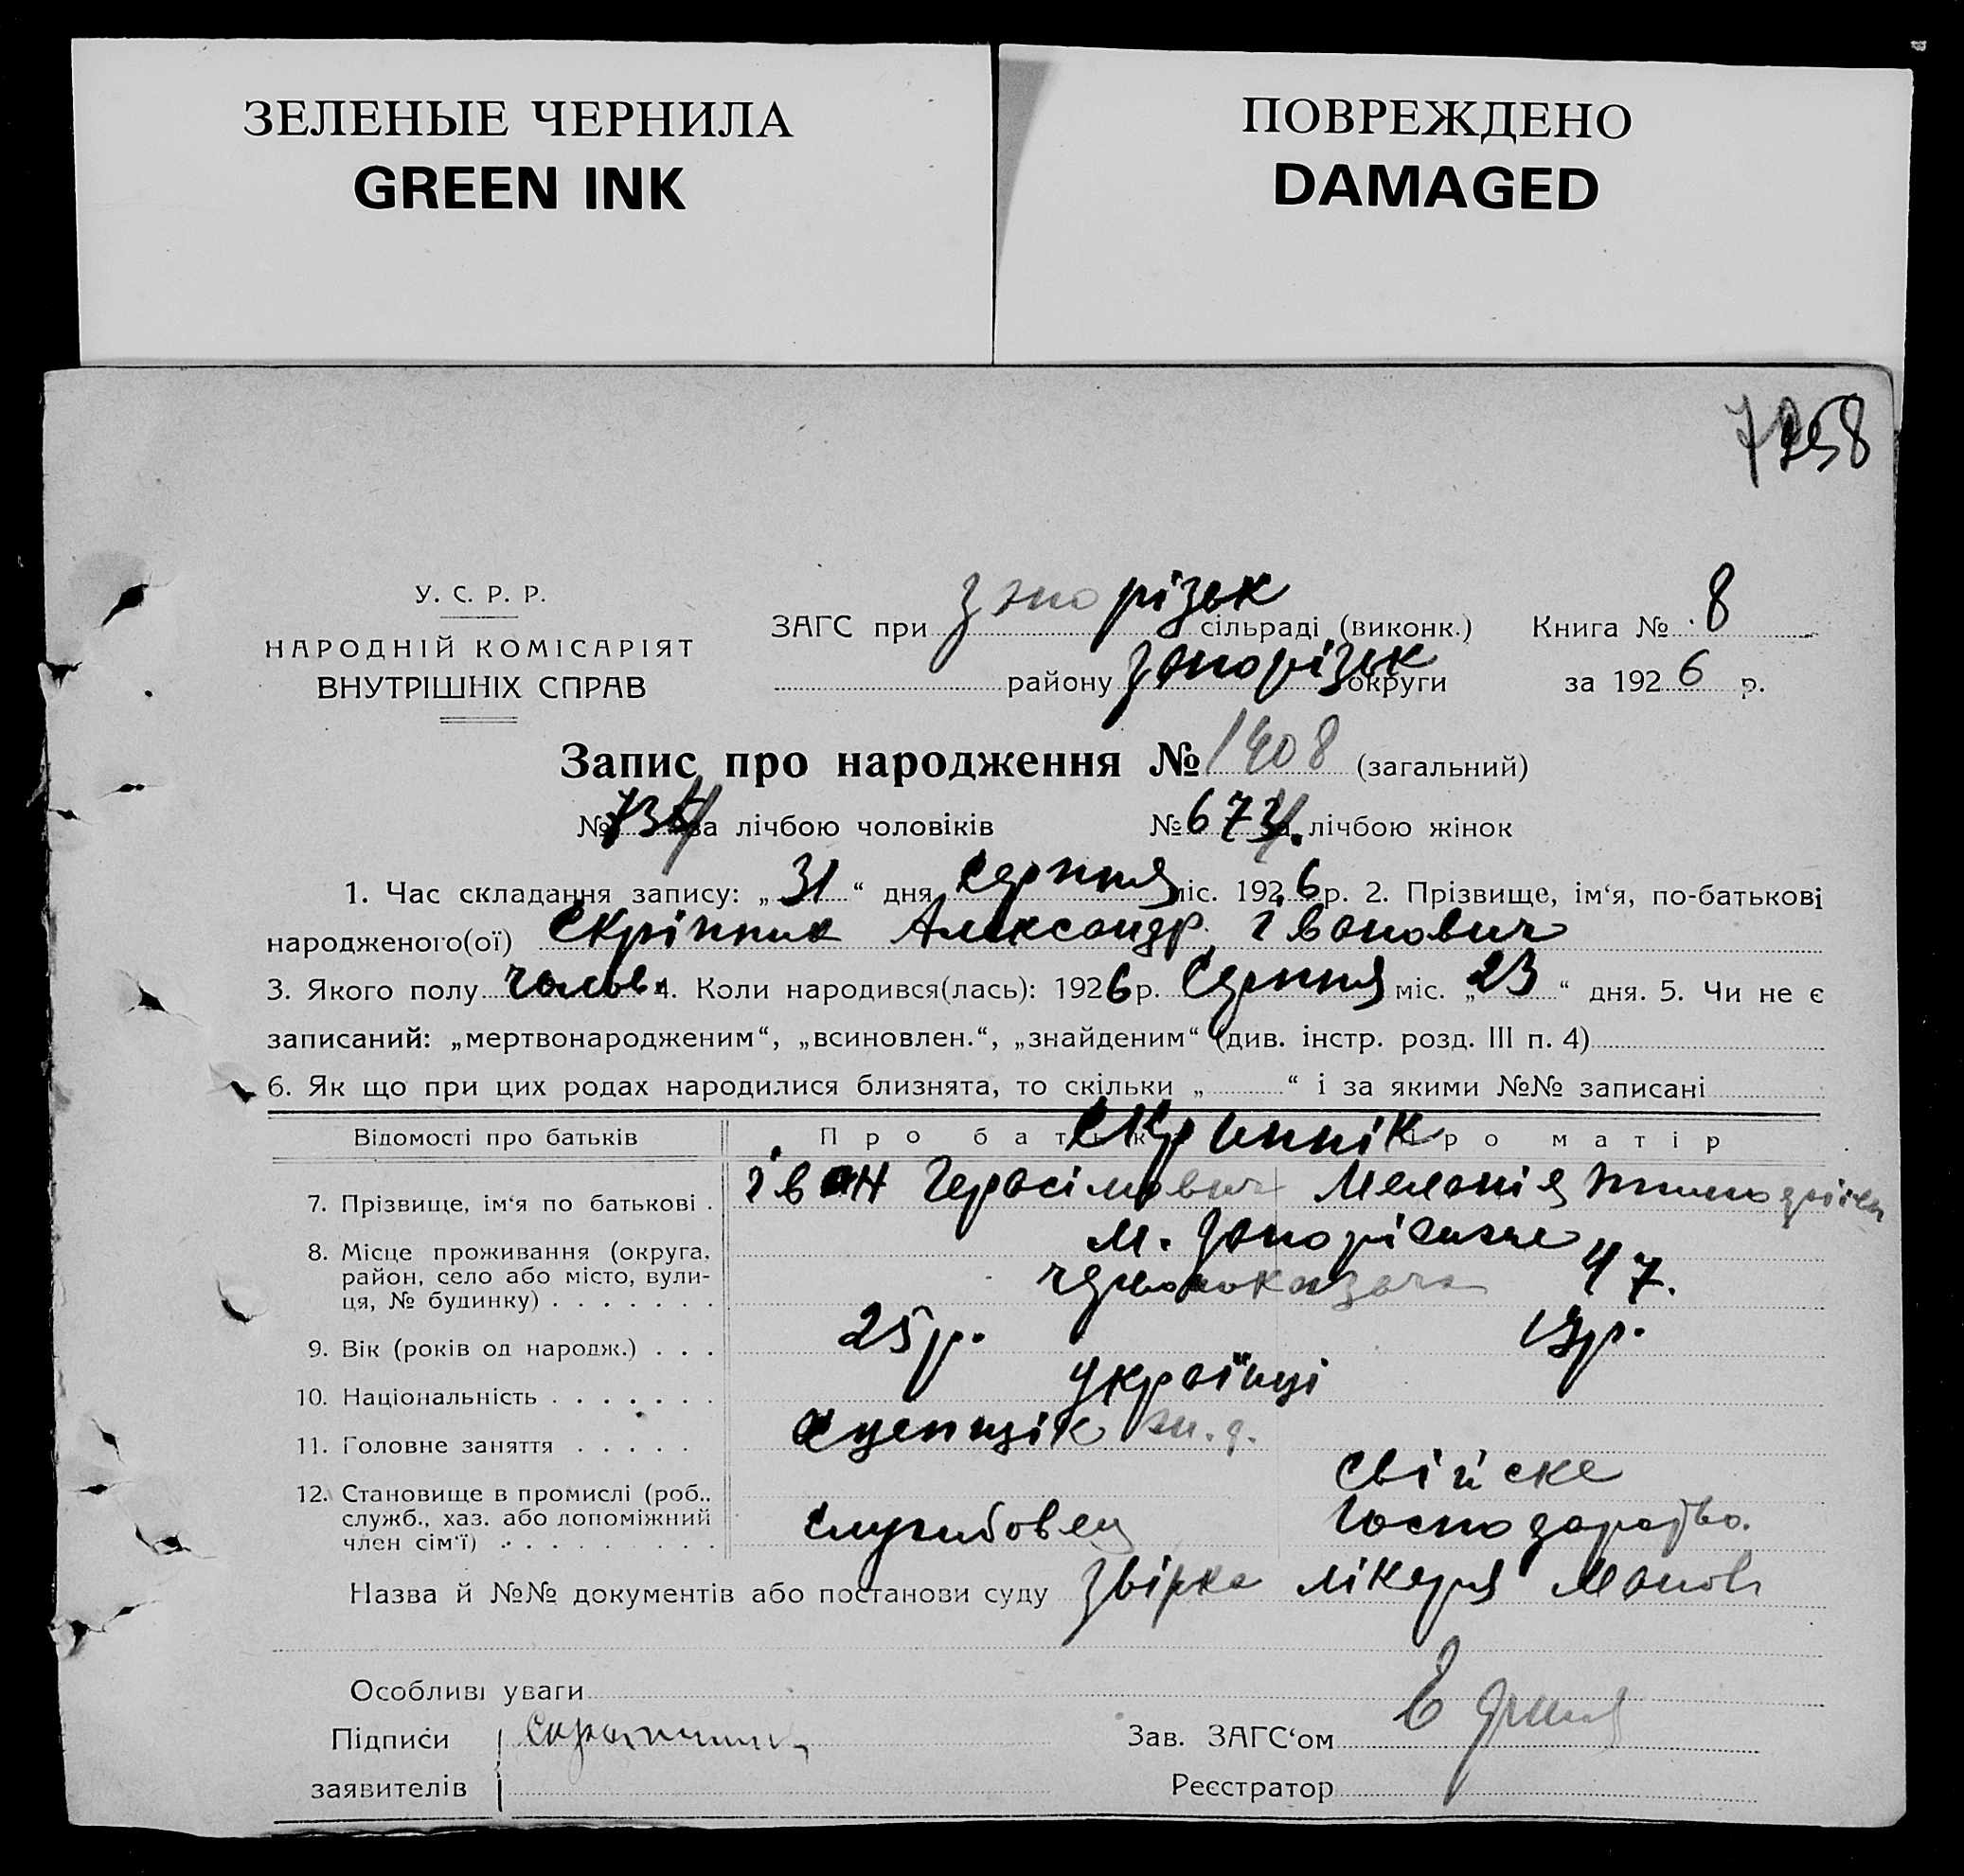 ЗЕЛЕНЫЕ ЧЕРНИЛА
GREEN INK
ПОВРЕЖДЕНО
DAMAGED
У. С. Р. Р.
НАРОДНІЙ КОМІСАРІЯТ
ВНУТРІШНІХ СПРАВ
ЗАГС при Запорізьк сільраді (виконк.) Книга № 8
району Запорізьк округи за 1926 р.
Запис про народження № 1408 (загальний)
№ за лічбою чоловіків № 674 за лічбою жінок
1. Час складання запису: „31“ дня Серпня міс. 1926 р. 2. Прізвище, ім‘я, по-батькові
народженого(ої) Скріпник Александр Івонович
3. Якого полу чолов. 4. Коли народився(лась): 1926 р. Серпня міс. „23“ дня. 5. Чи не є
записаний: „мертвонародженим“, „всиновлен.“, „знайденим“ (див. інстр. розд. III п. 4)
6. Як що при цих родах народилися близнята, то скільки „ “ і за якими №№ записані
Відомості про батьків Про батька Про матір
Скрипнік
7. Прізвище, ім‘я по батькові . Іван Герасімович Меланія
8. Місце проживання (округа, район, село або місто, вулиця, № будинку) . . . . . . . м. Запоріжжє
47.
9. Вік (років од народж.) . . . 25 р. р.
10. Національність . . . . . . . українці
11. Головне заняття . . . . . сцепщік
12. Становище в промислі (роб., служб., хаз. або допоміжний член сім‘ї) . . . . . . . . . службовец свійске господарство.
Назва й №№ документів або постанови суду звірка лікаря
Особливі уваги
Підписи
заявителів
Зав. ЗАГС‘ом
Реєстратор